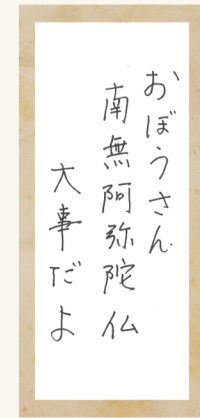 おぼうさん
南無阿弥陀仏
大事だよ